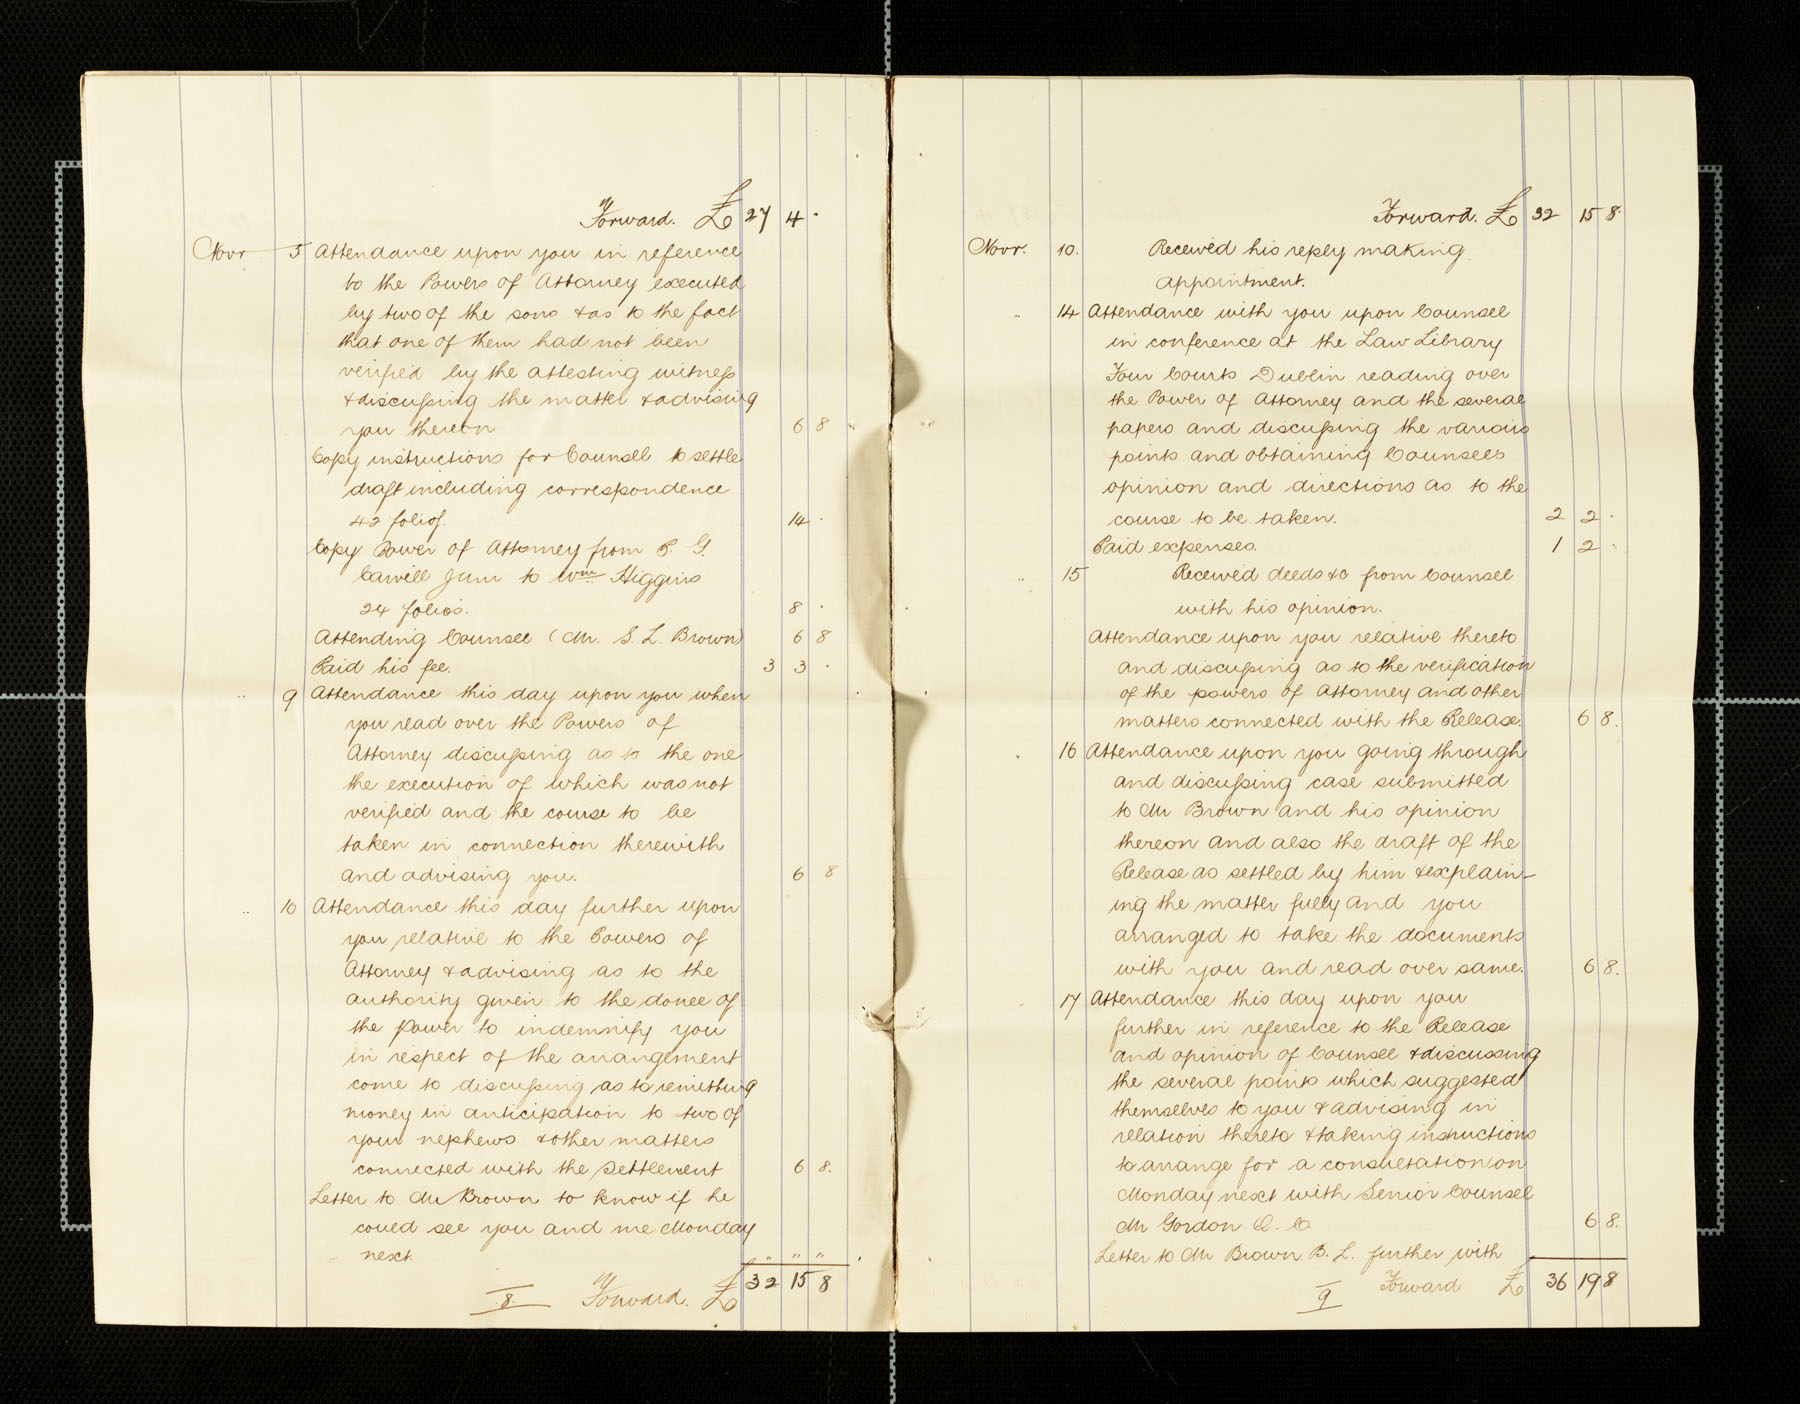 Forward. £ 27 4 .
Novr 5 Attendance upon you in reference
to the Powers of Attorney executed
by two of the sons & as to the fact
that one of them had not been
verified by the attesting witness
& discussing the matter & advising
you thereon 6 8
Copy instructions for Counsel to settle
draft including correspondence
42 folios. 14 .
Copy Power of Attorney from P. G.
Carvill Junr to Wm Higgins
24 folios. 8 .
Attending Counsel (Mr. S. L. Brown) 6 8
Paid his fee. 3 3 .
" 9 Attendance this day upon you when
you read over the Powers of
Attorney discussing as to the one
the execution of which was not
verified and the course to be
taken in connection therewith
and advising you. 6 8
" 10 Attendance this day further upon
you relative to the Powers of
Attorney & advising as to the
authority given to the donee of
the power to indemnify you
in respect of the arrangement
come to discussing as to remitting
money in anticipation to two of
your nephews & other matters
connected with the Settlement 6 8.
Letter to Mr Brown to know if he
could see you and me Monday
next. " " "
8. Forward. £ 32 15 8
Forward. £ 32 15 8.
Novr. 10. Received his reply making
appointment.
" 14 Attendance with you upon Counsel
in conference at the Law Library
Four Courts Dublin reading over
the Power of Attorney and the several
papers and discussing the various
points and obtaining Counsels
opinion and directions as to the
course to be taken. 2 2 .
Paid expenses. 1 2 .
" 15 Received deeds &c from Counsel
with his opinion.
Attendance upon you relative thereto
and discussing as to the verification
of the powers of Attorney and other
matters connected with the Release. 6 8.
" 16 Attendance upon you going through
and discussing case submitted
to Mr Brown and his opinion
thereon and also the draft of the
Release as settled by him & explain-
ing the matter fully and you
arranged to take the documents
with you and read over same. 6 8.
17 Attendance this day upon you
further in reference to the Release
and opinion of Counsel & discussing
the several points which suggested
themselves to you & advising in
relation thereto & taking instructions
to arrange for a consultation on
Monday next with Senior Counsel
Mr Gordon Q. C. 6 8.
Letter to Mr Brown B. L. further with
9 Forward £ 36 19 8